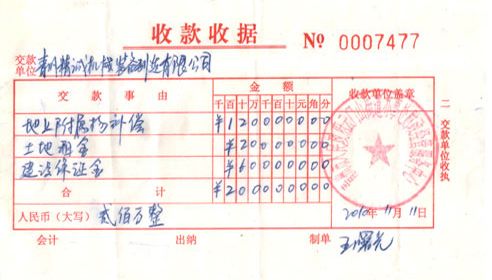 收款收据 № 0007477
交款单位 青州精诚机械装备制造有限公司
交款事由 金额 收款单位盖章
千百十万千百十元角分
地上附属物补偿 ¥120000000
土地租金 ¥20000000
建设保证金 ¥60000000
合计 ¥200000000
人民币(大写) 贰佰万整 2010年11月11日
会计 出纳 制单 王曙光
二 交款单位收执